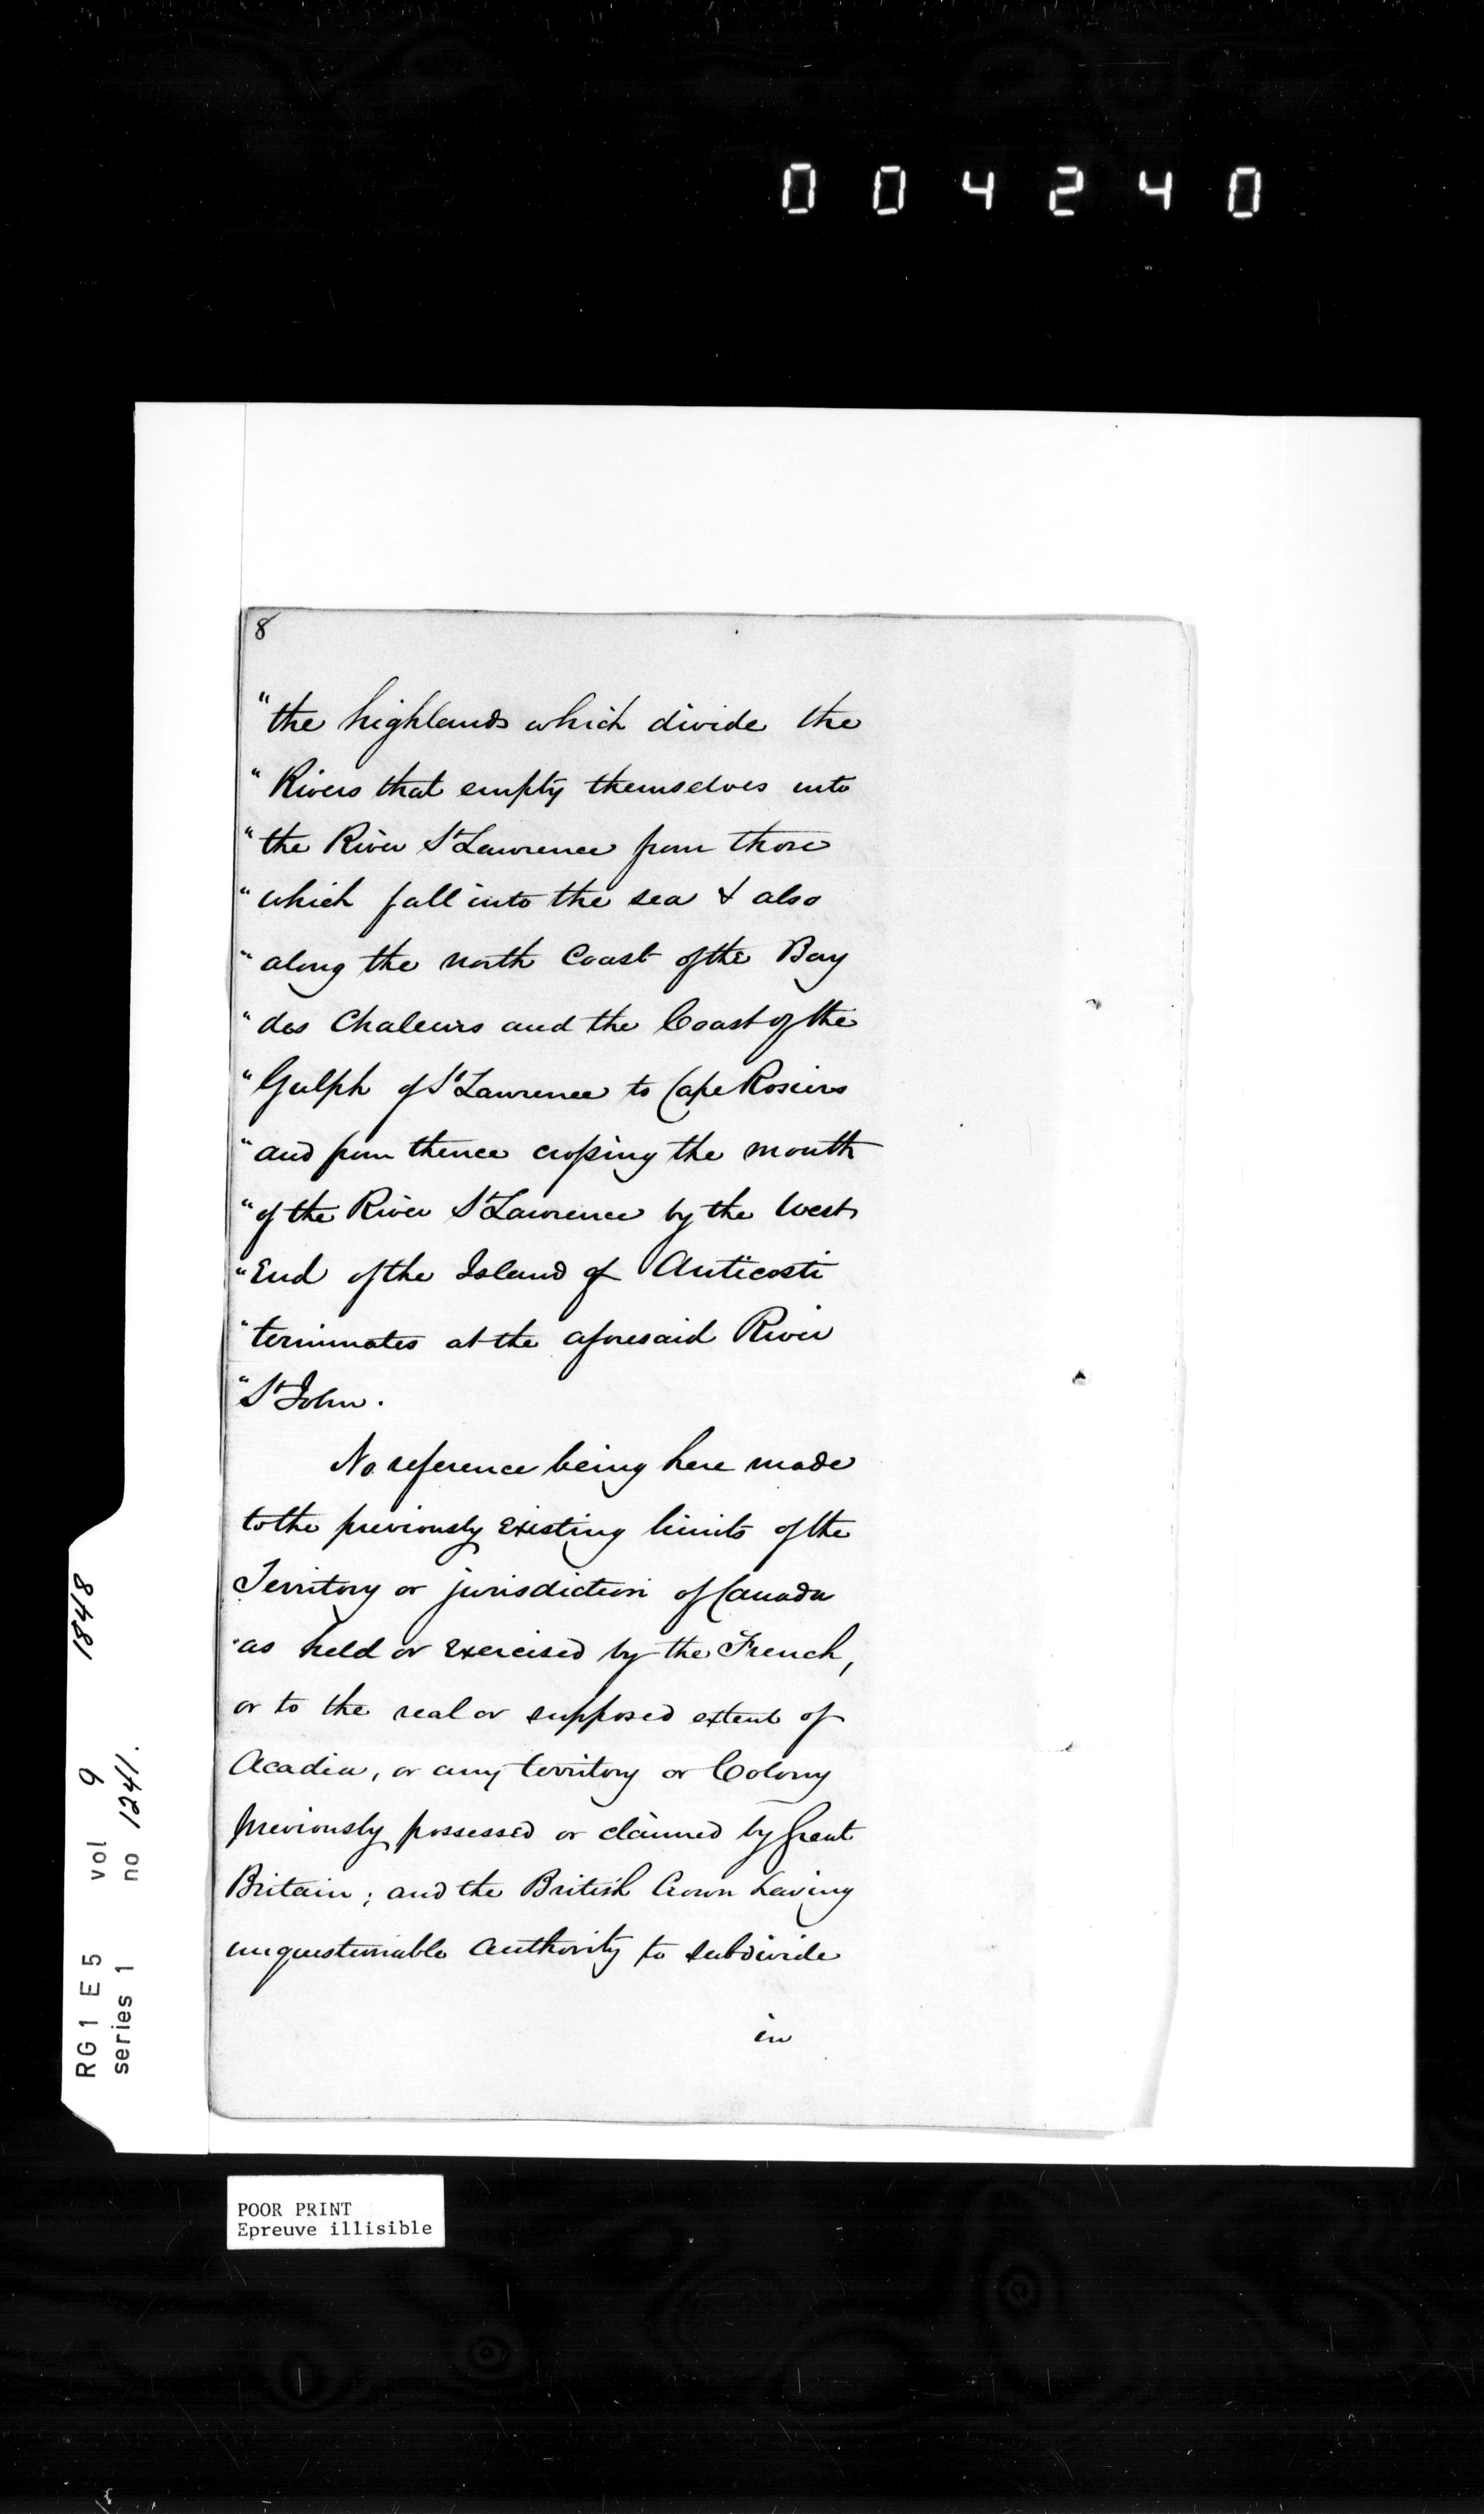 004240
8
"the highlands which divide the
"Rivers that empty themselves into
"the River St Lawrence from those
"which fall into the sea & also
"along the north Coast of the Bay
"des Chaleurs and the Coast of the
"Gulph of St Lawrence to Cape Rosiers
"and from thence crossing the mouth
"of the River St Lawrence by the West
"End of the Island of Anticosti
"terminates at the aforesaid River
"St John.
No reference being here made
to the previously existing limits of the
Territory or jurisdiction of Canada
as held or exercised by the French,
or to the real or supposed extent of
Acadia, or any territory or Colony
previously possessed or claimed by Great
Britain; and the British Crown having
unquestionable authority to subdivide
in
RG1 E5 vol 9 1848
series 1 no 1241.
POOR PRINT
Epreuve illisible